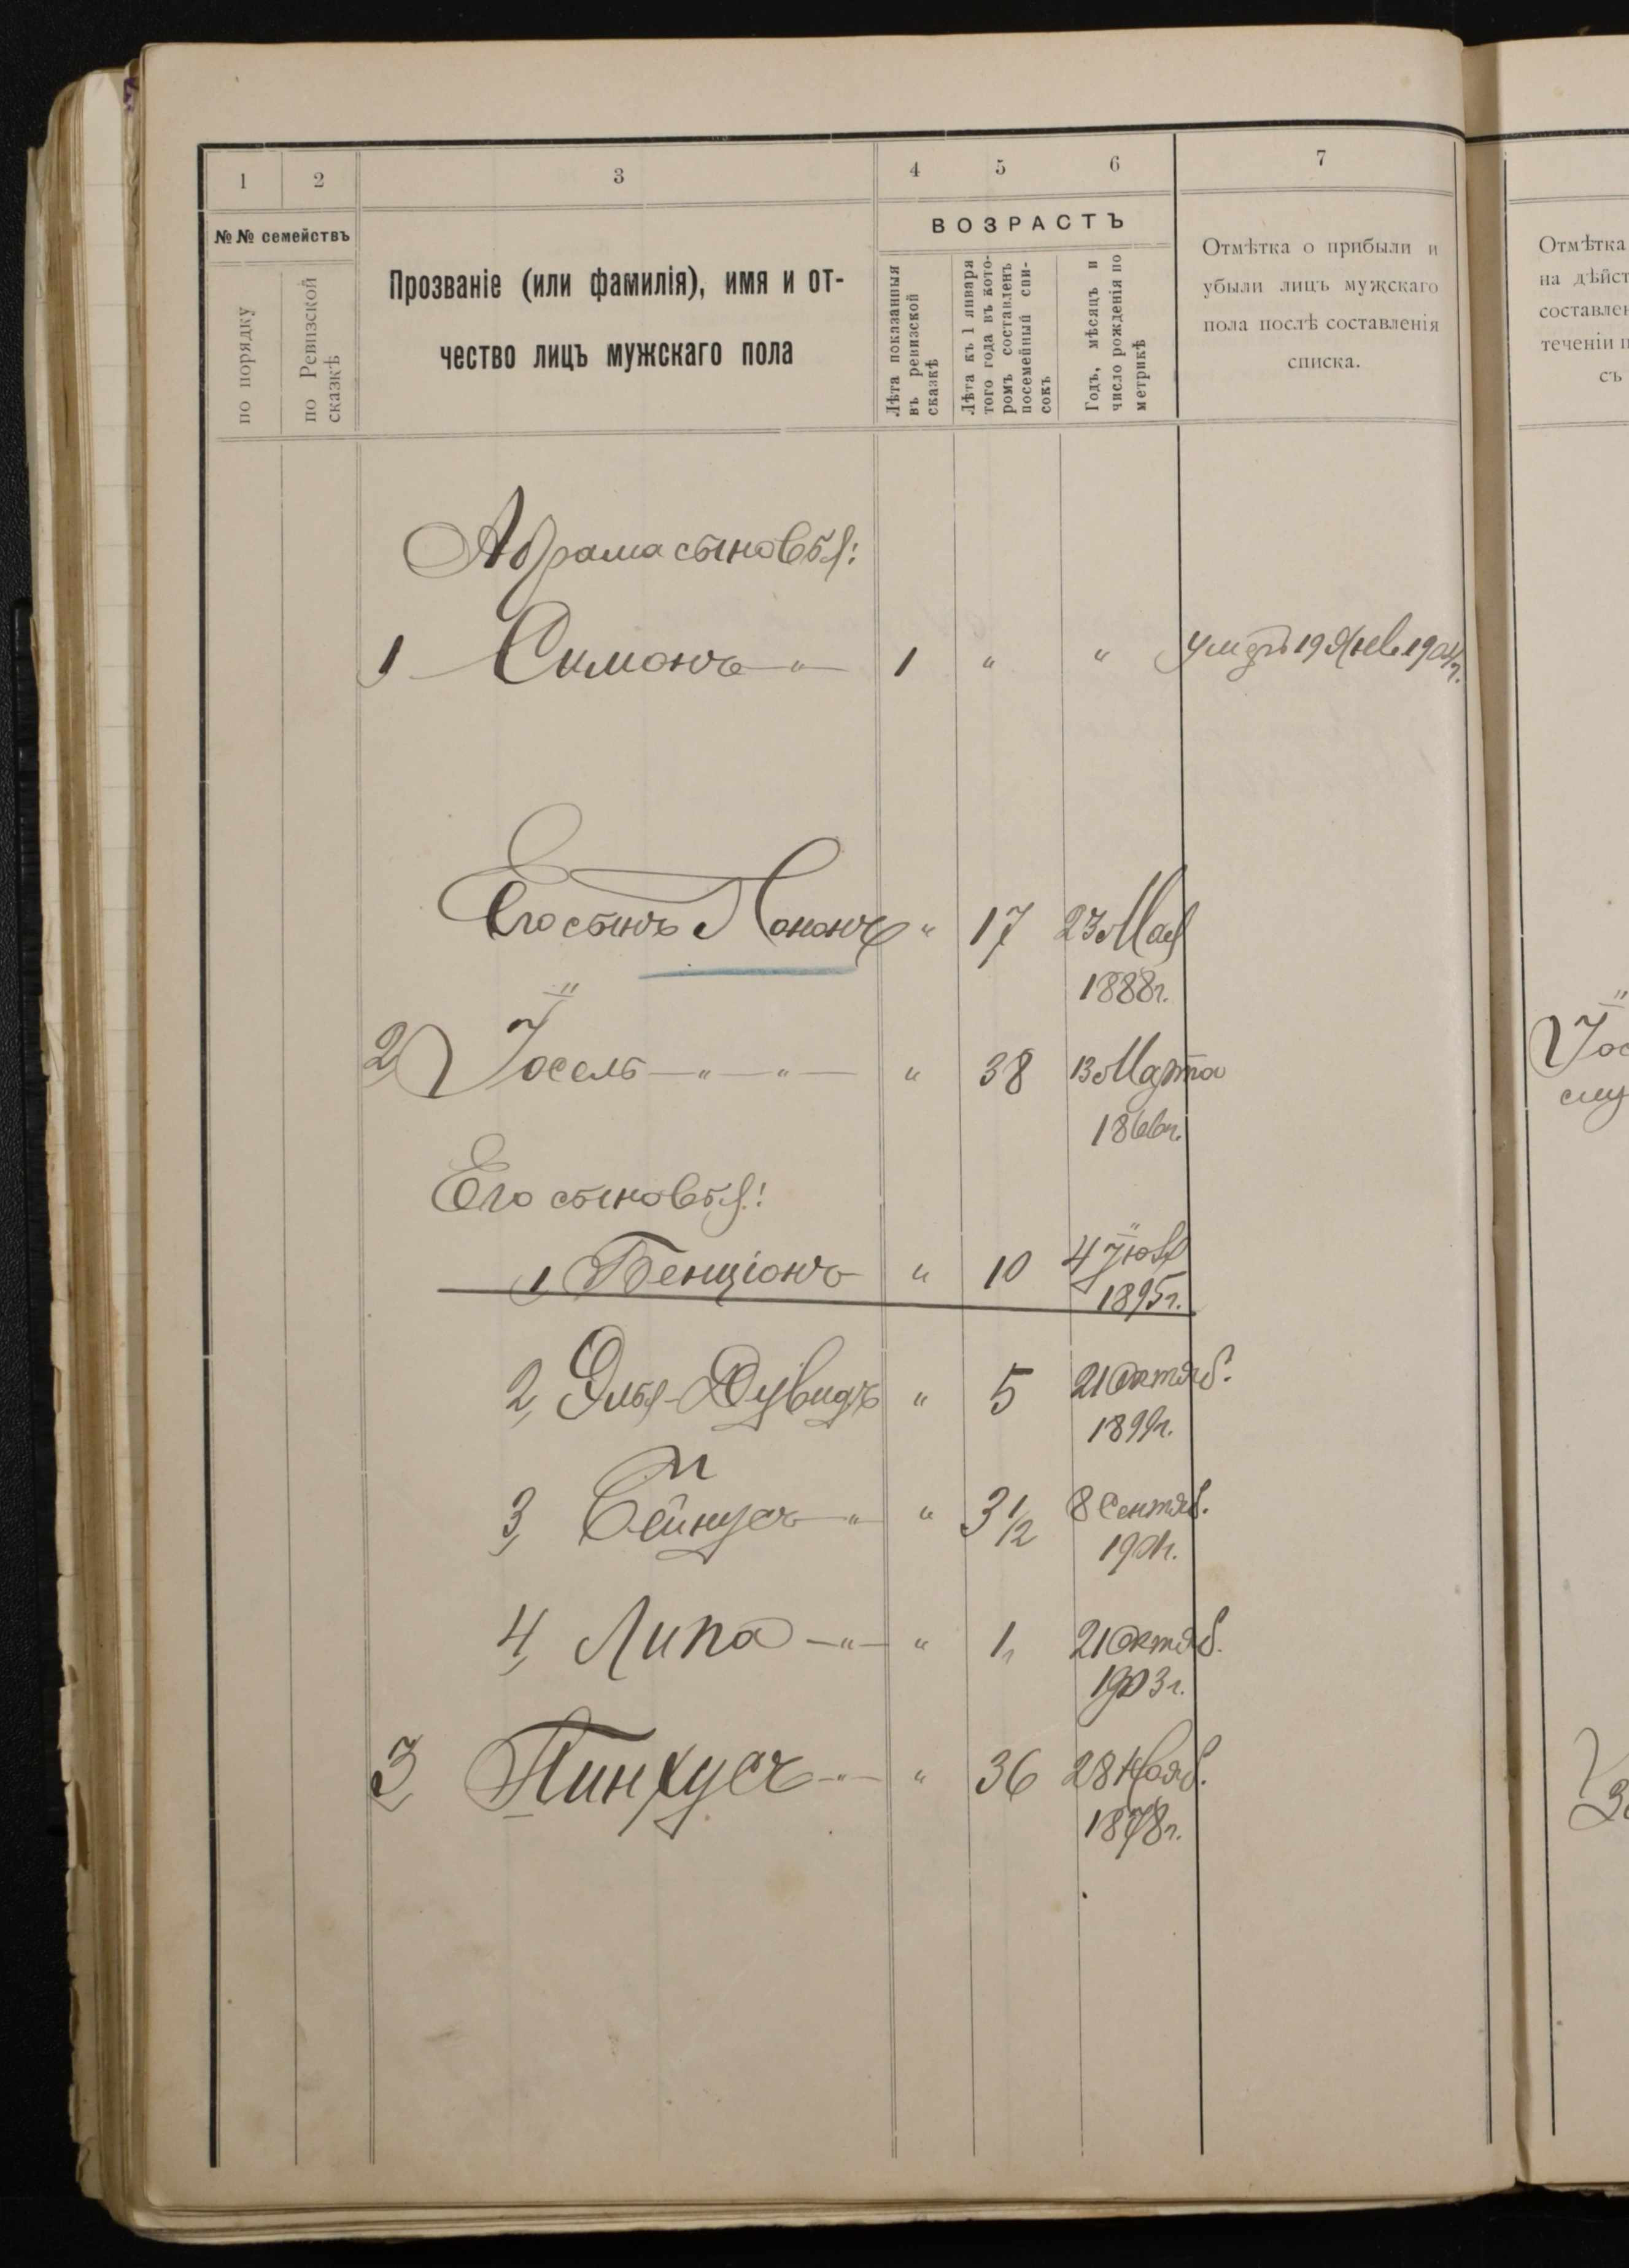 1 2 3 4 5 6 7
№№ семействъ
по порядку
по Ревизской
сказкѣ
Прозваніе (или фамилія), имя и от-
чество лицъ мужскаго пола
ВОЗРАСТЪ
Лѣта показанныя
въ ревизской
сказкѣ
Лѣта къ 1 января
того года въ кото-
ромъ составленъ
посемейный спи-
сокъ
Годъ, мѣсяцъ и
число рожденія по
метрикѣ
Отмѣтка о прибыли и
убыли лицъ мужскаго
пола послѣ составленія
списка.
Отмѣтка
на дѣйст
составлен
теченіи п
съ
Абрама сыновья:
1 Симонъ — " — 1 " " умеръ 19 Янв. 1904 г.
Его сынъ " 17 23 Мая
1888 г.
2 Іосель — " — " — " 38 13 Марта
1866 г.
Іос
слу
Его сыновья:
1, Бенціонъ " 10 4 Іюля
1895 г.
2, Элья-Дувидъ " 5 21 Октяб.
1899 г.
3, Бейнусъ — " — " 3 1/2 8 Сентяб.
1901 г.
4, Липа — " — " 1 21 Октяб.
1903 г.
3, Пинхусъ — " — " 36 28 Нояб.
1878 г.